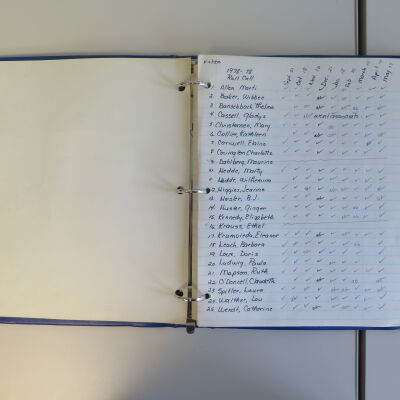 1978-79
Roll Call
Sept 21 Oct 19 Nov 16 Dec 21 Jan 18 Feb March April May 17
1. Allen, Marti
2. Baker, Wibbee
3. Barschbach, Thelma
4. Cassell, Gladys
5. Christensen, Mary
6. Collier, Kathleen
7. Cornwell, Elaine
8. Covington, Charlotte
9. Dahlberg, Maurine
10. Hedde, Marty
11. Hedde, Wilhemina
12. Higgins, Jeanne
13. Hosler, B.J.
14. Hunter, Ginger
15. Kennedy, Elizabeth
16. Krauss, Ethel
17. Kramvieda, Eleanor
18. Leach, Barbara
19. Love, Doris
20. Ludwig, Paula
21. Mapson, Ruth
22. O'Donnell, Claudette
23. Spitler, Laura
24. Walther, Lou
25. Wendt, Catherine